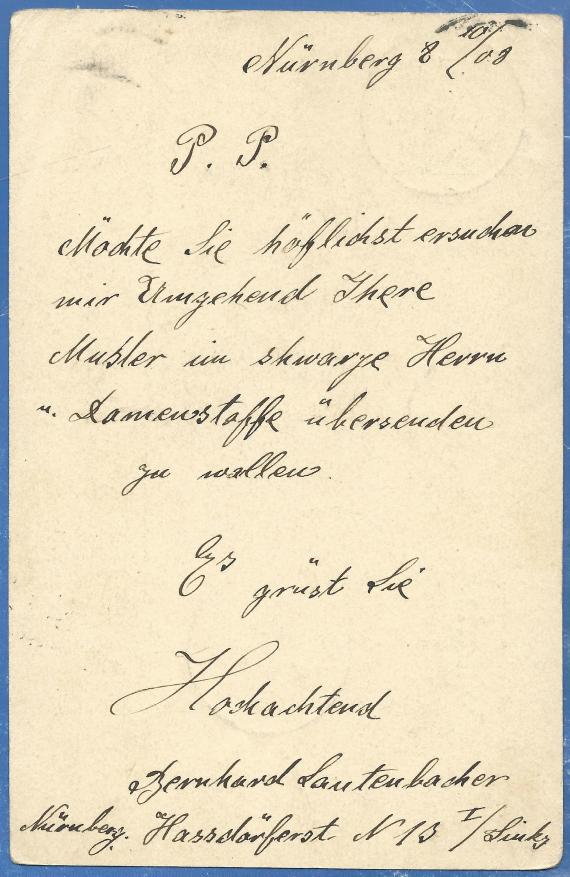 Nürnberg 8 10/08
P. P.
Möchte Sie höflichst ersuchen
mir Umgehend Ihere
Mußter im shwarze Herrn
u. Damenstoffe übersenden
zu wollen.
Es grüst Sie
Hochachtend
Bernhard Lautenbacher
Nürnberg. Hassdörferst. N 13 I/Links